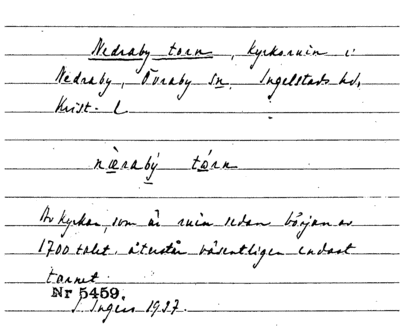 Nedraby torn, kyrkoruin i
Nedraby, Övraby sn. Ingelstads hd,
Krist. l
nærabý tɷrn
Av kyrkan, som är ruin sedan början av
1700 talet, återstår väsentligen endast
tornet.
Nr 5459.
S. Ingers 1937.